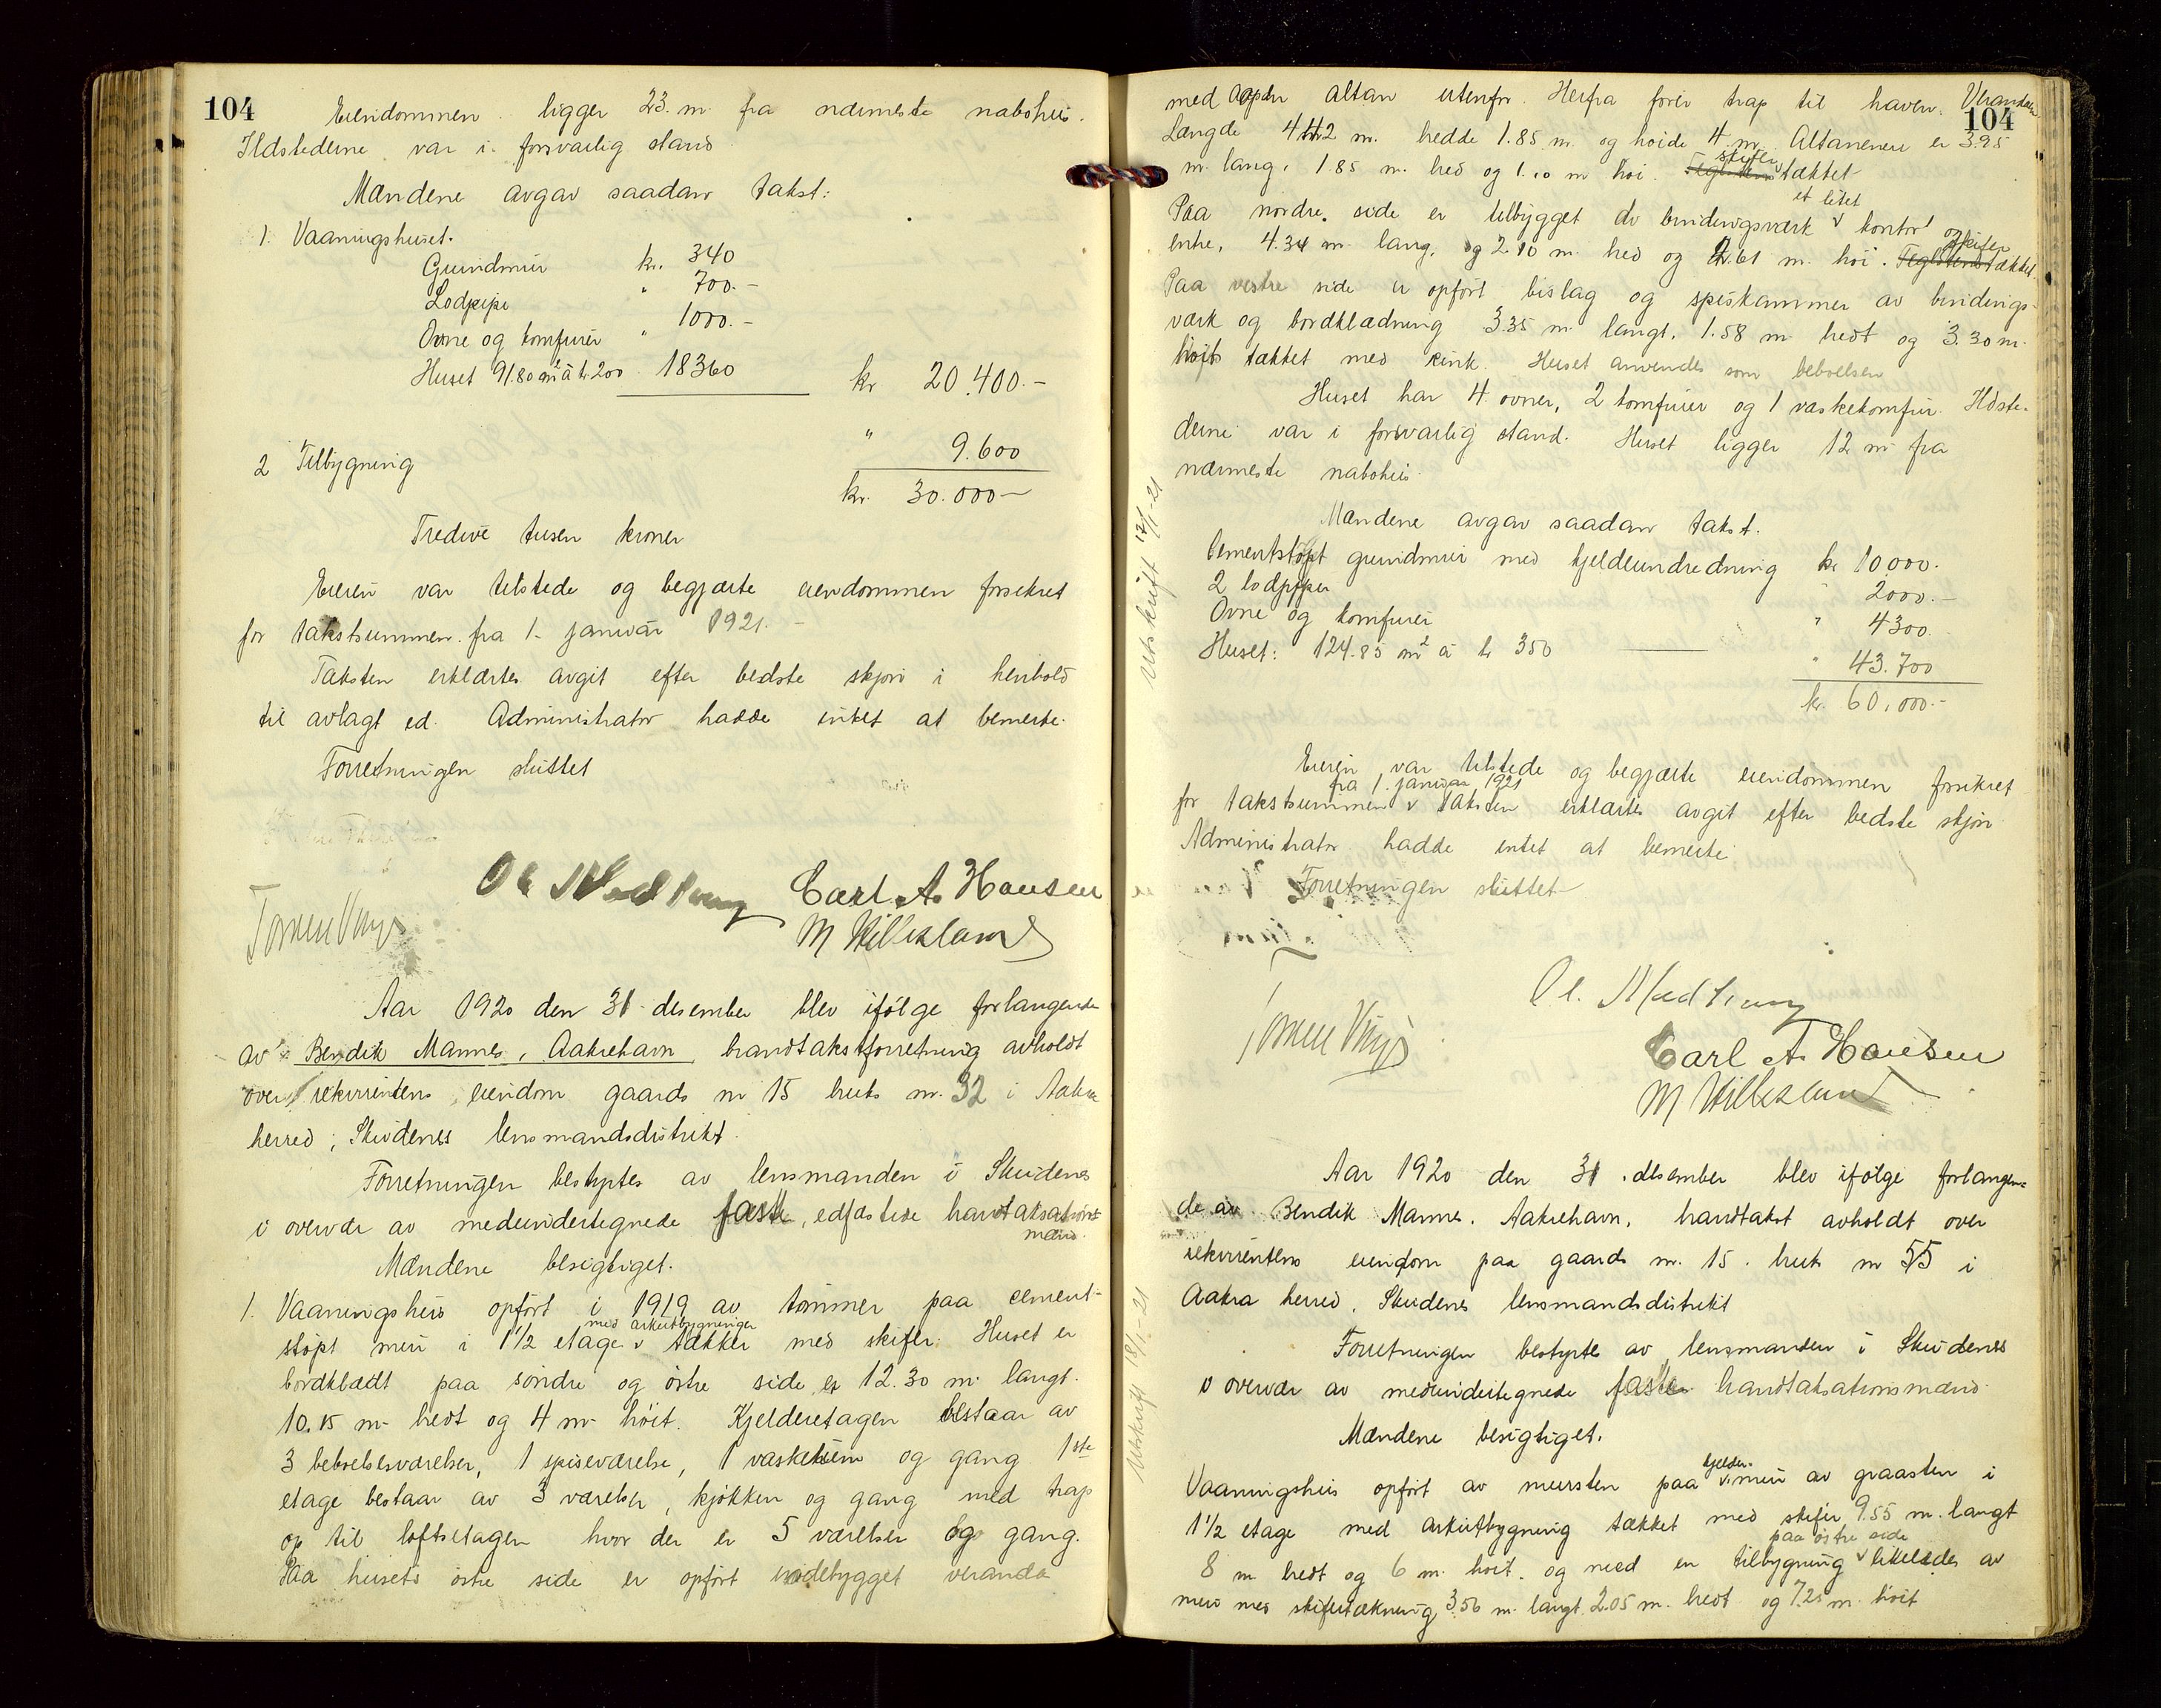 104
Eiendommen ligger 23. m. fra nærmeste nabohus.
Ildstederne var i forsvarlig stand
Mændene avgav saadan takst:
1. Vaaningshuset.
Grundmur kr. 340
Lodpipe " 700.-
Ovne og komfurer " 1000.-
Huset 91.80 m² à kr. 200 18360 kr 20.400.-
2 Tilbygning " 9.600
kr. 30.000-
Tredive tusen kroner
Eieren var tilstede og begjærte eiendommen forsikret
for takstsummen fra 1. januar 1921. -
Taksten erklærtes avgit efter bedste skjøn i henhold
til avlagt ed. Administrator hadde intet at bemerke.
Forretningen sluttet
Carl A. Hansen
M Hilleslund
Aar 1920 den 31 desember blev ifølge forlangende
av Bendik Mannes, Aakrehavn brandtakstforretning avholdt
over rekvirentens eiendom gaards nr 15 bruks nr. 32 i Aakra
herred, Skudenes lensmandsdistrikt.
Forretningen bestyrtes av lensmanden i Skudenes
i overvær av medundertegnede faste, edfæstede brandtaksations
mænd.
Mændene besigtiget.
1. Vaaningshus opført i 1919 av tømmer paa cement-
med arkutbygninger
støpt mur i 1 1/2 etage v tækket med skifer. Huset er
bordklædt paa søndre og østre side er 12.30 m. langt.
10.15 m. bredt og 4 m. høit. Kjelderetagen bestaar av
3 beboelsesværelser, 1 spiseværelse, 1 vaskerum og gang 1ste
etage bestaar av 3 værelser, kjøkken og gang med trap
op til loftsetagen hvor der er 5 værelser og gang.
Paa husets østre side er opført indebygget veranda
104
med aapen altan utenfor. Herfra fører trap til haven. Verandaen
Længde 4.42 m. bredde 1.85 m. og høide 4 m. Altanen er 3.95
skifer
m. lang, 1.85 m. bred og 1.10 m høi. Teglstens tækket
et litet
Paa nordre side er tilbygget av bindingsværk v kontor og
skifer
entre, 4.34 m. lang, og 2.10 m. bred og 2.61 m. høi. Teglstens tækket.
Paa vestre side er opført bislag og spiskammer av bindings-
værk og bordklædning 3.35 m. langt, 1.58 m. bredt og 3.30 m.
høit tækket med zink. Huset anvendes som beboelse
Huset har 4 ovner, 2 komfurer og 1 vaskekomfur. Ildste-
derne var i forsvarlig stand. Huset ligger 12 m. fra
nærmeste nabohus.
Mændene avgav saadan takst.
Cementstøpt grundmur med kjelderindredning kr 10,000.
2 lodpiper " 2000.-
Ovne og komfurer " 4300.
Huset: 124.85 m² à kr 350 " 43.700
kr. 60,000.-
Eieren var tilstede og begjærte eiendommen forsikret
fra 1. januar 1921
for takstsummen v Taksten erklærtes avgit efter bedste skjøn
Administrator hadde intet at bemerke
Forretningen sluttet
Carl A. Hansen
M Hilleslund
Aar 1920 den 31 desember blev ifølge forlangen-
de av Bendik Mannes, Aakrehavn, brandtakst avholdt over
rekvirentens eiendom paa gaards nr. 15. bruks nr 55 i
Aakra herred, Skudenes lensmandsdistrikt
Forretningen bestyrtes av lensmanden i Skudenes
i overvær av medundertegnede faste brandtaksationsmænd.
Mændene besigtiget.
kjelder-
Vaaningshus opført av mursten paa v mur av graasten i
1 1/2 etage med arkutbygning tækket med skifer 9.55 m. langt
paa østre side
8 m. bredt og 6 m. høit. og med en tilbygning v likeledes av
mur med skifertækning 3.56 m. langt 2.05 m. bredt og 7.25 m. høit
Utskrift 18/1-21